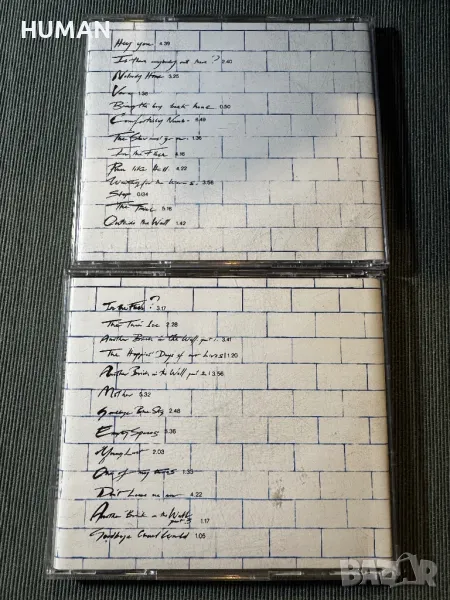 HUMAN
Hey you 4.39
Is there anybody out there? 2.40
Nobody Home 3.25
Vera 1.38
Bring the boy back home 0.50
Comfortably Numb. 6.49
The Show must go on. 1.36
In the Flesh 4.16
Run like Hell. 4.22
Waiting for the worms. 3.56
Stop 0.34
The Trial 5.16
Outside the Wall 1.42
In the Flesh? 3.17
The Thin Ice 2.28
Another Brick in the Wall part 1. 3.41
The Happiest Days of our Lives 1.20
Another Brick in the Wall part 2. 3.56
Mother 5.32
Goodbye Blue Sky 2.48
Empty Spaces 5.36
Young Lust 2.03
One of my turns 1.33
Don't Leave me now 4.22
Another Brick in the Wall part 3 1.17
Goodbye Cruel World 1.05
BAZAR